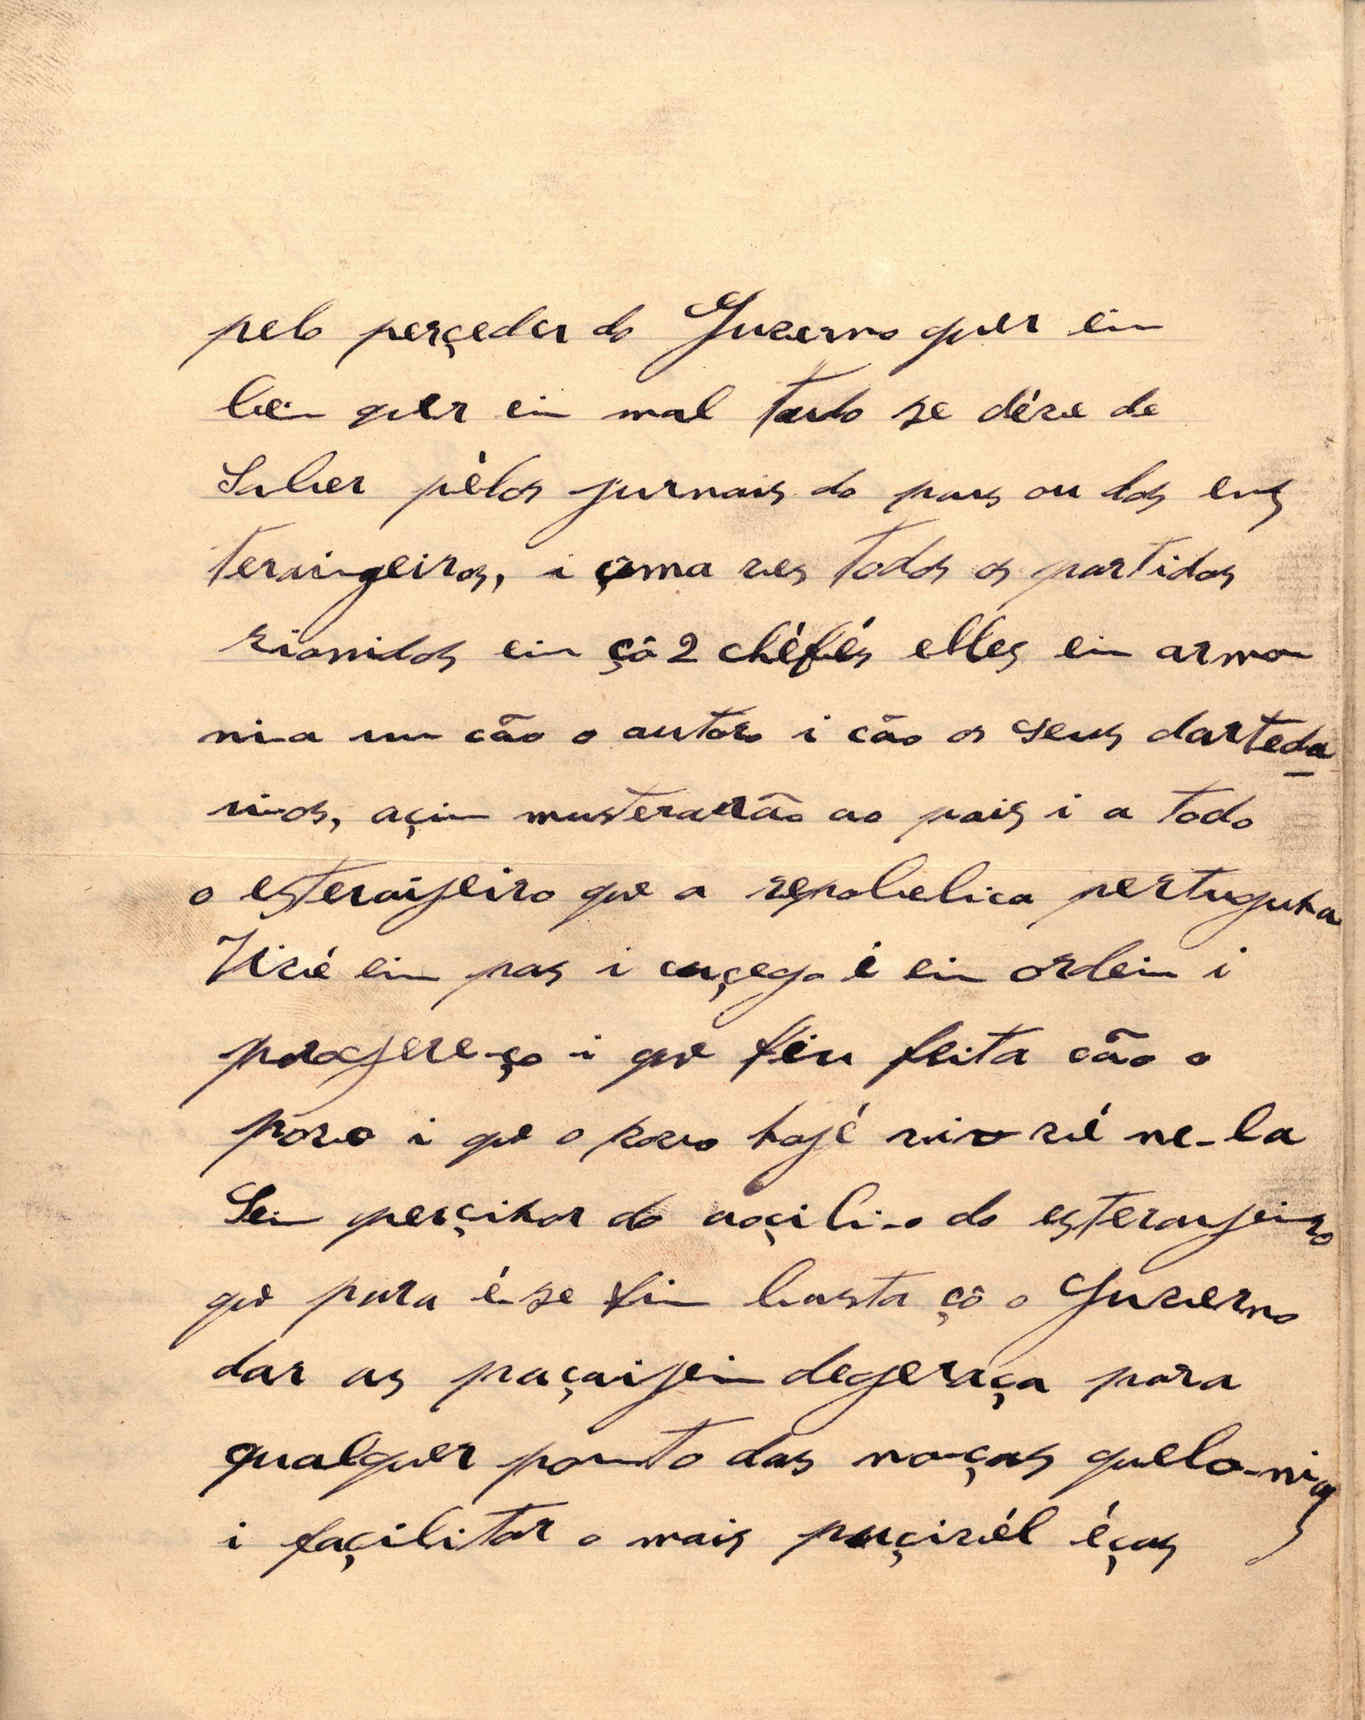 pelo perçeder do Guverno quer ein
bein quer ein mal tudo se déve de
Saber pèlos jurnais do pais ou dos ens
terainjeiros, i çuma ves todos os partidos
rionidos ein çó 2 chéfés elles ein armo
nia un cão o autoro i cão os seus darteda
rios, açin musterarão ao pais i a todo
o esteraijeiro que a repubelica pertugueza
Vivé ein pas i çuçego é ein ordein i
perogereço i que fiu feita cão o
povo i que o povo hojé vivé ne-la
Sein perçizar do aoçilio do esteranjeiro
que para é-se fin basta çó o Guverno
dar as paçaijein degeraça para
qualquer ponto das noças quelonias
i façilitar o mais puçivél éças